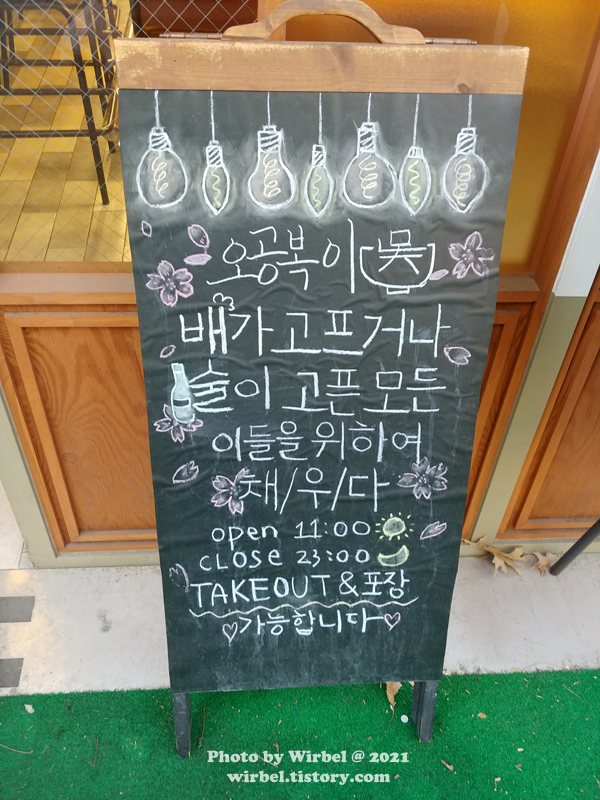 오공복이
배가고프거나
술이 고픈 모든
이들을위하여
채/우/다
open 11:00
CLOSe 23:00
TAKEOUT & 포장
가능합니다
Photo by Wirbel @ 2021
wirbel.tistory.com